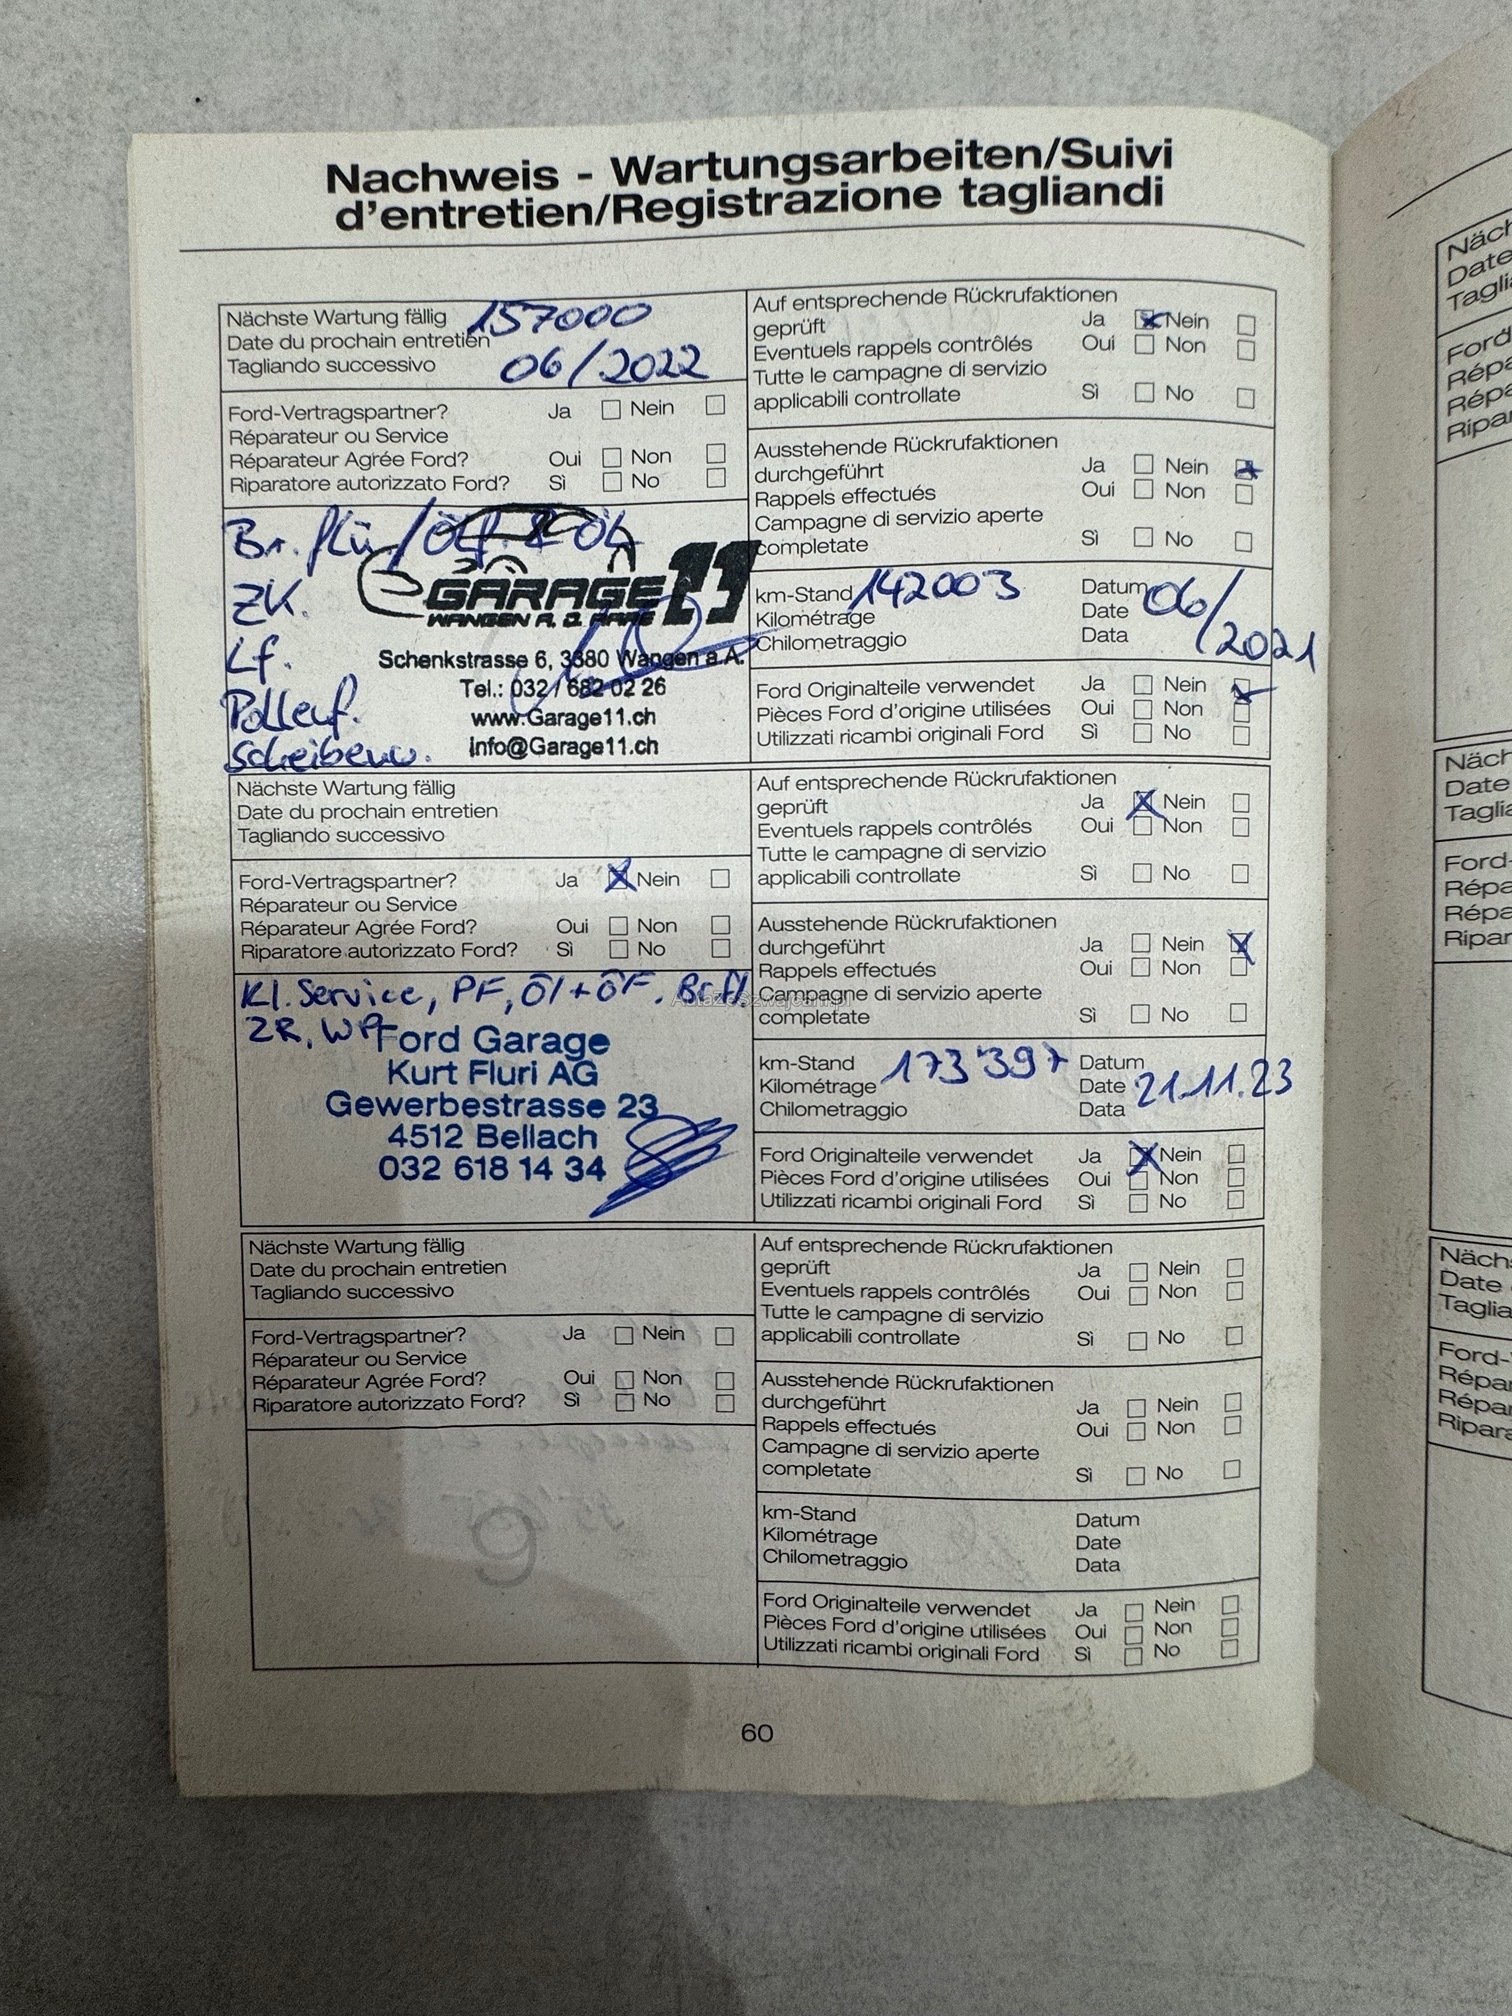 Nachweis - Wartungsarbeiten/Suivi
d'entretien/Registrazione tagliandi
Nächste Wartung fällig 157000
Date du prochain entretien
Tagliando successivo 06/2022
Ford-Vertragspartner? Ja Nein
Réparateur ou Service
Réparateur Agrée Ford? Oui Non
Riparatore autorizzato Ford? Sì No
Br. flü/
ZK.
Lf.
Pollenf.
Scheibenw.
GARAGE 11
WANGEN A. D. AARE
Schenkstrasse 6, 3380 Wangen a.A.
Tel.: 032 / 682 02 26
www.Garage11.ch
info@Garage11.ch
Auf entsprechende Rückrufaktionen
geprüft Ja Nein
Eventuels rappels contrôlés Oui Non
Tutte le campagne di servizio
applicabili controllate Sì No
Ausstehende Rückrufaktionen
durchgeführt Ja Nein
Rappels effectués Oui Non
Campagne di servizio aperte
completate Sì No
km-Stand 142003 Datum 06/2021
Kilométrage Date
Chilometraggio Data
Ford Originalteile verwendet Ja Nein
Pièces Ford d'origine utilisées Oui Non
Utilizzati ricambi originali Ford Sì No
Nächste Wartung fällig
Date du prochain entretien
Tagliando successivo
Ford-Vertragspartner? Ja Nein
Réparateur ou Service
Réparateur Agrée Ford? Oui Non
Riparatore autorizzato Ford? Sì No
Kl. Service, PF, Öl+ÖF. Br.fl.
ZR, WP
Ford Garage
Kurt Fluri AG
Gewerbestrasse 23
4512 Bellach
032 618 14 34
Auf entsprechende Rückrufaktionen
geprüft Ja Nein
Eventuels rappels contrôlés Oui Non
Tutte le campagne di servizio
applicabili controllate Sì No
Ausstehende Rückrufaktionen
durchgeführt Ja Nein
Rappels effectués Oui Non
AutazeSzwajcarii.pl
Campagne di servizio aperte
completate Sì No
km-Stand 173'397 Datum
Kilométrage Date 21.11.23
Chilometraggio Data
Ford Originalteile verwendet Ja Nein
Pièces Ford d'origine utilisées Oui Non
Utilizzati ricambi originali Ford Sì No
Nächste Wartung fällig
Date du prochain entretien
Tagliando successivo
Ford-Vertragspartner? Ja Nein
Réparateur ou Service
Réparateur Agrée Ford? Oui Non
Riparatore autorizzato Ford? Sì No
Auf entsprechende Rückrufaktionen
geprüft Ja Nein
Eventuels rappels contrôlés Oui Non
Tutte le campagne di servizio
applicabili controllate Sì No
Ausstehende Rückrufaktionen
durchgeführt Ja Nein
Rappels effectués Oui Non
Campagne di servizio aperte
completate Sì No
km-Stand Datum
Kilométrage Date
Chilometraggio Data
Ford Originalteile verwendet Ja Nein
Pièces Ford d'origine utilisées Oui Non
Utilizzati ricambi originali Ford Sì No
60